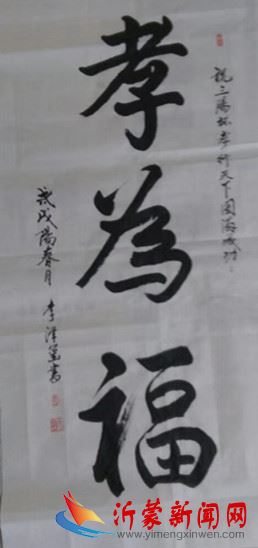 祝三腾杯孝行天下圆满成功:
孝為福
戊戌陽春月 李泽筆書
沂蒙新闻网
www.yimengxinwen.com